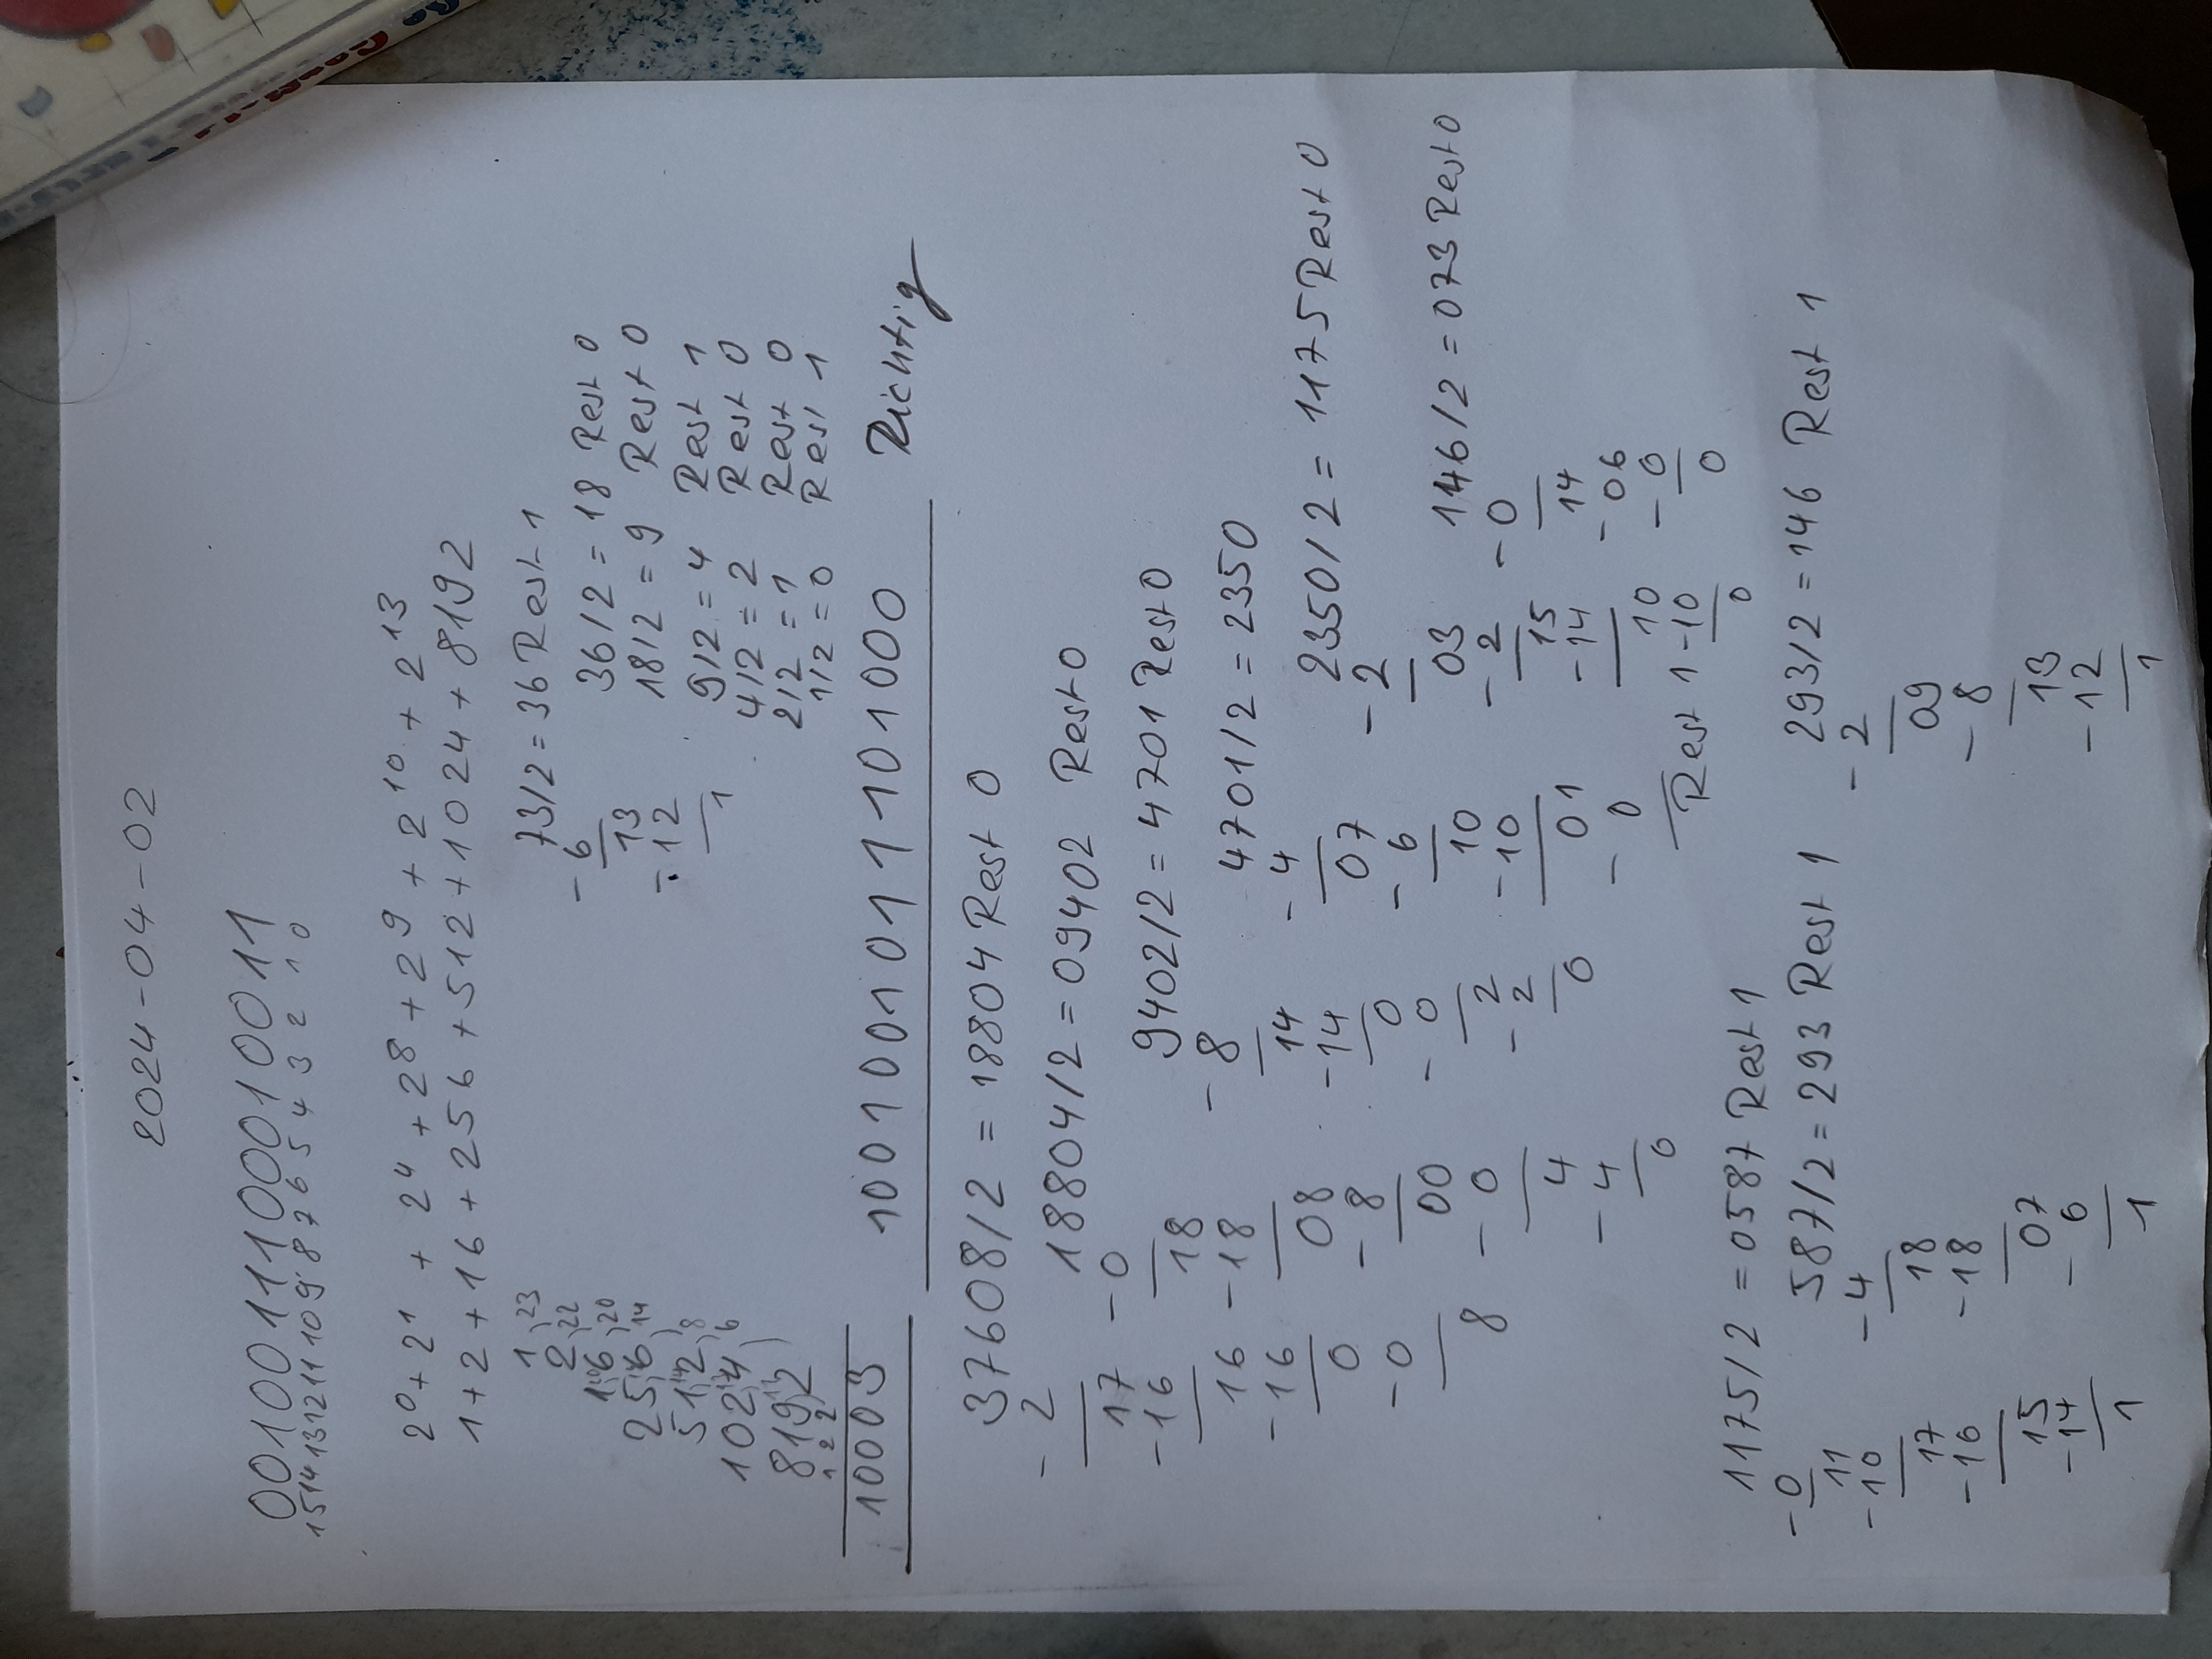 2024-04-02
0010011100010011
15 14 13 12 11 10 9 8 7 6 5 4 3 2 1 0
2^0 + 2^1 + 2^4 + 2^8 + 2^9 + 2^10 + 2^13
1 + 2 + 16 + 256 + 512 + 1024 + 8192
1 23
2 22
16 20
256 14
512 8
1024 6
8192
1 2 2
10003
73/2 = 36 Rest 1
- 6
13
- 12
1
36/2 = 18 Rest 0
18/2 = 9 Rest 0
9/2 = 4 Rest 1
4/2 = 2 Rest 0
2/2 = 1 Rest 0
1/2 = 0 Rest 1
1001001011101000 Richtig
37608/2 = 18804 Rest 0
- 2
17
- 16
16
- 16
0
- 0
8
18804/2 = 09402 Rest 0
- 0
18
- 18
08
- 8
00
- 0
4
- 4
0
9402/2 = 4701 Rest 0
- 8
14
- 14
0
- 0
2
- 2
0
4701/2 = 2350
- 4
07
- 6
10
- 10
01
- 0
Rest 1
2350/2 = 1175 Rest 0
- 2
03
- 2
15
- 14
10
- 10
0
146/2 = 073 Rest 0
- 0
14
- 06
- 0
0
1175/2 = 0587 Rest 1
- 0
11
- 10
17
- 16
15
- 14
1
587/2 = 293 Rest 1
- 4
18
- 18
07
- 6
1
293/2 = 146 Rest 1
- 2
09
- 8
13
- 12
1